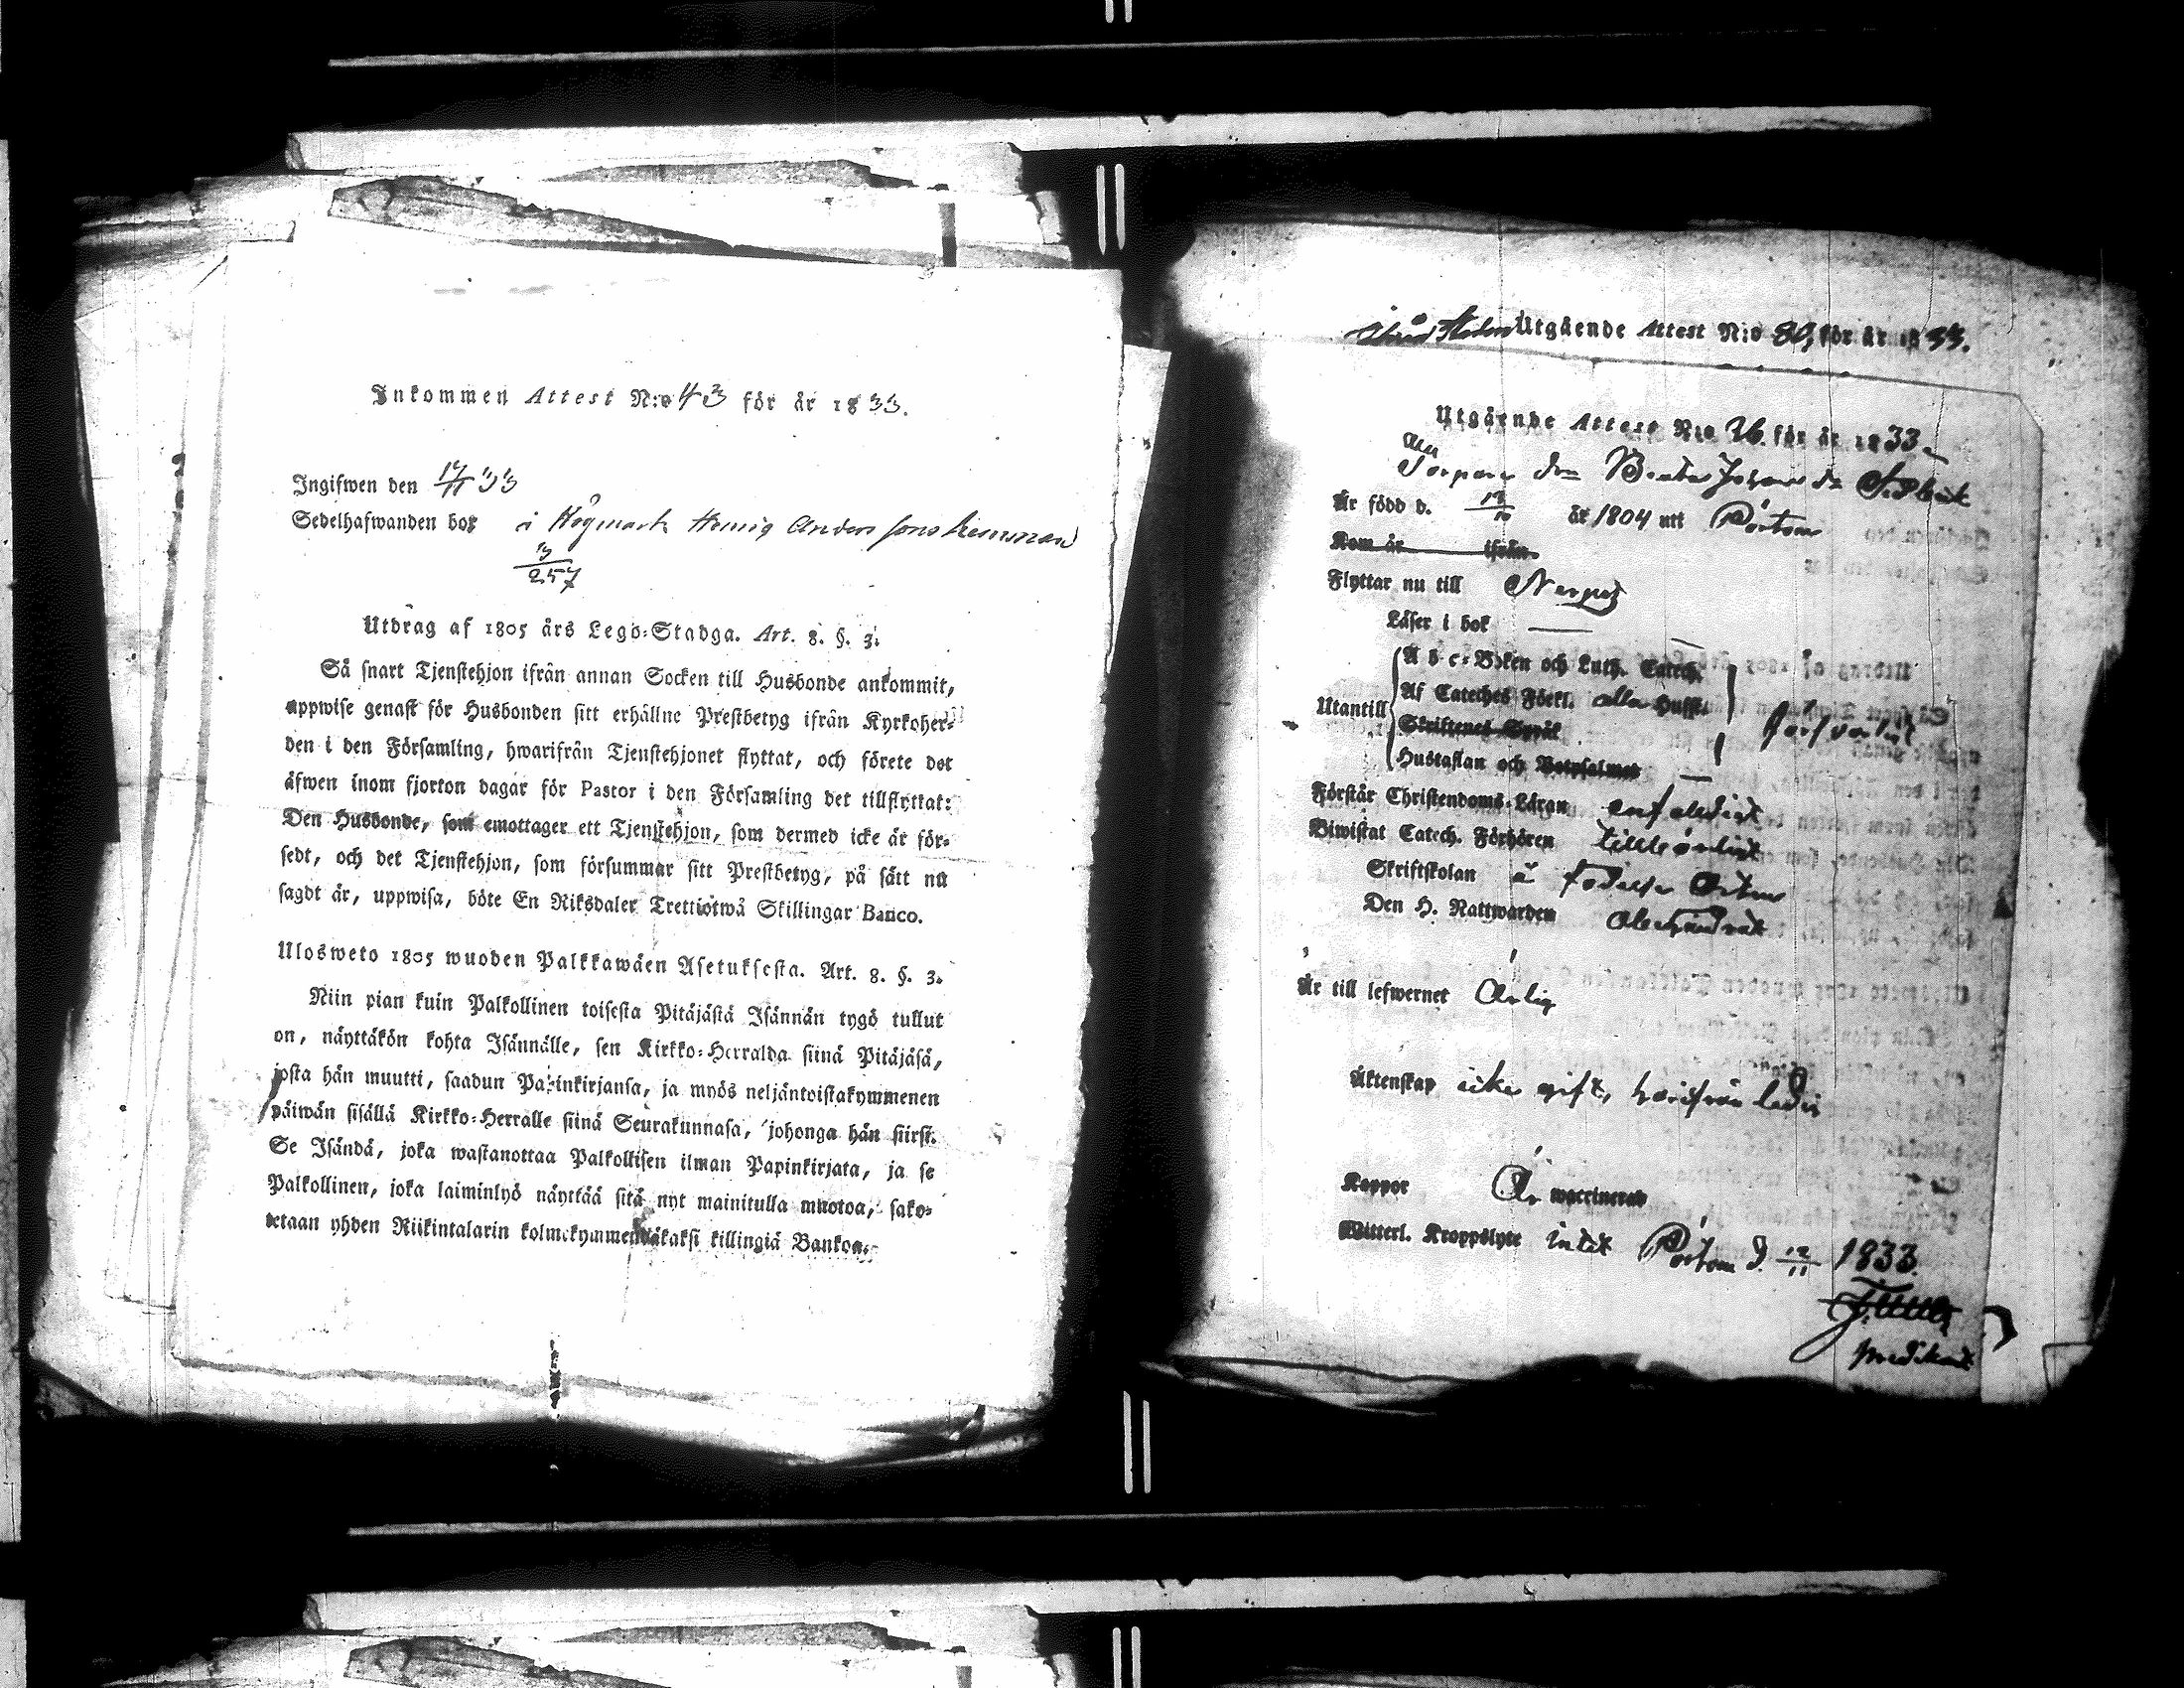 Inkommen Attest N:o 43 för år 1833.
Ingifwen den 14/11 33
Sedelhafwanden bor i Högmark Henrig Anders sons hemman
13/257
Utdrag af 1805 års Lego-Stadga. Art. 8. §. 3.
Så snart Tjenstehjon ifrån annan Socken till Husbonde ankommit,
uppwise genast för Husbonden sitt erhållne Prestbetyg ifrån Kyrkoher-
den i den Församling, hwarifrån Tjenstehjonet flyttat, och förete det
äfwen inom fjorton dagar för Pastor i den Församling det tillflyttat:
Den Husbonde, som emottager ett Tjenstehjon, som dermed icke är för-
sedt, och det Tjenstehjon, som försummar sitt Prestbetyg, på sätt nu
sagdt är, uppwisa, böte En Riksdaler Trettiotwå Skillingar Banco.
Ulosweto 1805 wuoden Palkkawäen Asetuksesta. Art. 8. §. 3.
Niin pian kuin Palkollinen toisesta Pitäjästä Isännän tygö tullut
on, näyttäkön kohta Isännälle, sen Kirkko-Herralda siinä Pitäjäsä,
josta hän muutti, saadun Papinkirjansa, ja myös neljäntoistakymmenen
päiwän sisällä Kirkko-Herralle siinä Seurakunnasa, johonga hän siirsi.
Se Isändä, joka wastanottaa Palkollisen ilman Papinkirjata, ja se
Palkollinen, joka laiminlyö näyttää sitä nyt mainitulla muotoa, sako-
tetaan yhden Riikintalarin kolmekymmendäkaksi killingiä Bankoa.
Utgående Attest N:o 80, för år 1833.
Utgående Attest N:o 26. för år 1833
Torpare Johans
Är född d. 13/10 år 1804 uti Pörtom
Kom år ifrån
Flyttar nu till Nerpes
Läser i bok
Utantill
A b c-Boken och Luth. Catech.
Af Cateches Förkl. alla Hufst.
Skriftenes Språk
Hustaflan och Botpsalmer
försvarligt
Förstår Christendoms-Läran enfaldigt
Biwistat Catech. Förhören tillbörligt
Skriftskolan å födelse Orten
Den H. Nattwarden
Är till lefwernet Ärlig
Äktenskap icke gift, härifrån ledig
Koppor Är waccinerad
Witterl. Kroppslyte intet Pörtom d. 12/11 1833